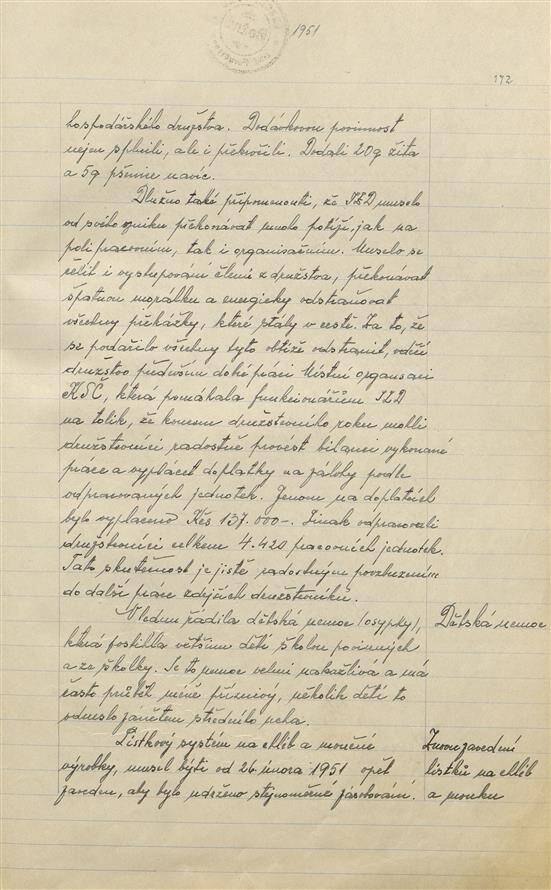 1951
172
hospodářského družstva. Dodávkovou povinnost
nejen splnili, ale i překročili. Dodali 20q žita
a 5q pšenice navíc.
Dlužno také připomenouti, že JZD muselo
od svého vzniku překonávat mnoho potíží, jak na
poli pracovním, tak i organisačním. Muselo se
řešit i vystupování členů z družstva, překonávat
špatnou morálku a energicky odstraňovat
všechny překážky, které stály v cestě. Za to, že
se podařilo všechny tyto obtíže odstranit, vděčí
družstvo především dobré práci Místní organisaci
KSČ, která pomáhala funkcionářům JZD
na tolik, že koncem družstevního roku mohli
družstevníci radostně provést bilanci vykonané
práce a vyplácet doplatky na zálohy podle
odpracovaných jednotek. Jenom na doplatcích
bylo vyplaceno Kčs 137.000-. Jinak odpracovali
družstevníci celkem 4.420 pracovních jednotek.
Tato skutečnost je jistě radostným povzbuzením
do další práce zdejších družstevníků.
V lednu řádila dětská nemoc (osypky),
Dětská nemoc
která postihla většinu dětí školou povinných
a ze školky. Je to nemoc velmi nakažlivá a má
často průběh méně příznivý, několik dětí to
odneslo zánětem středního ucha.
Lístkový systém na chléb a moučné
Znovuzavedení
výrobky, musel býti od 26. února 1951 opět
lístků na chléb
zaveden, aby bylo udrženo stejnoměrné zásobování.
a mouku